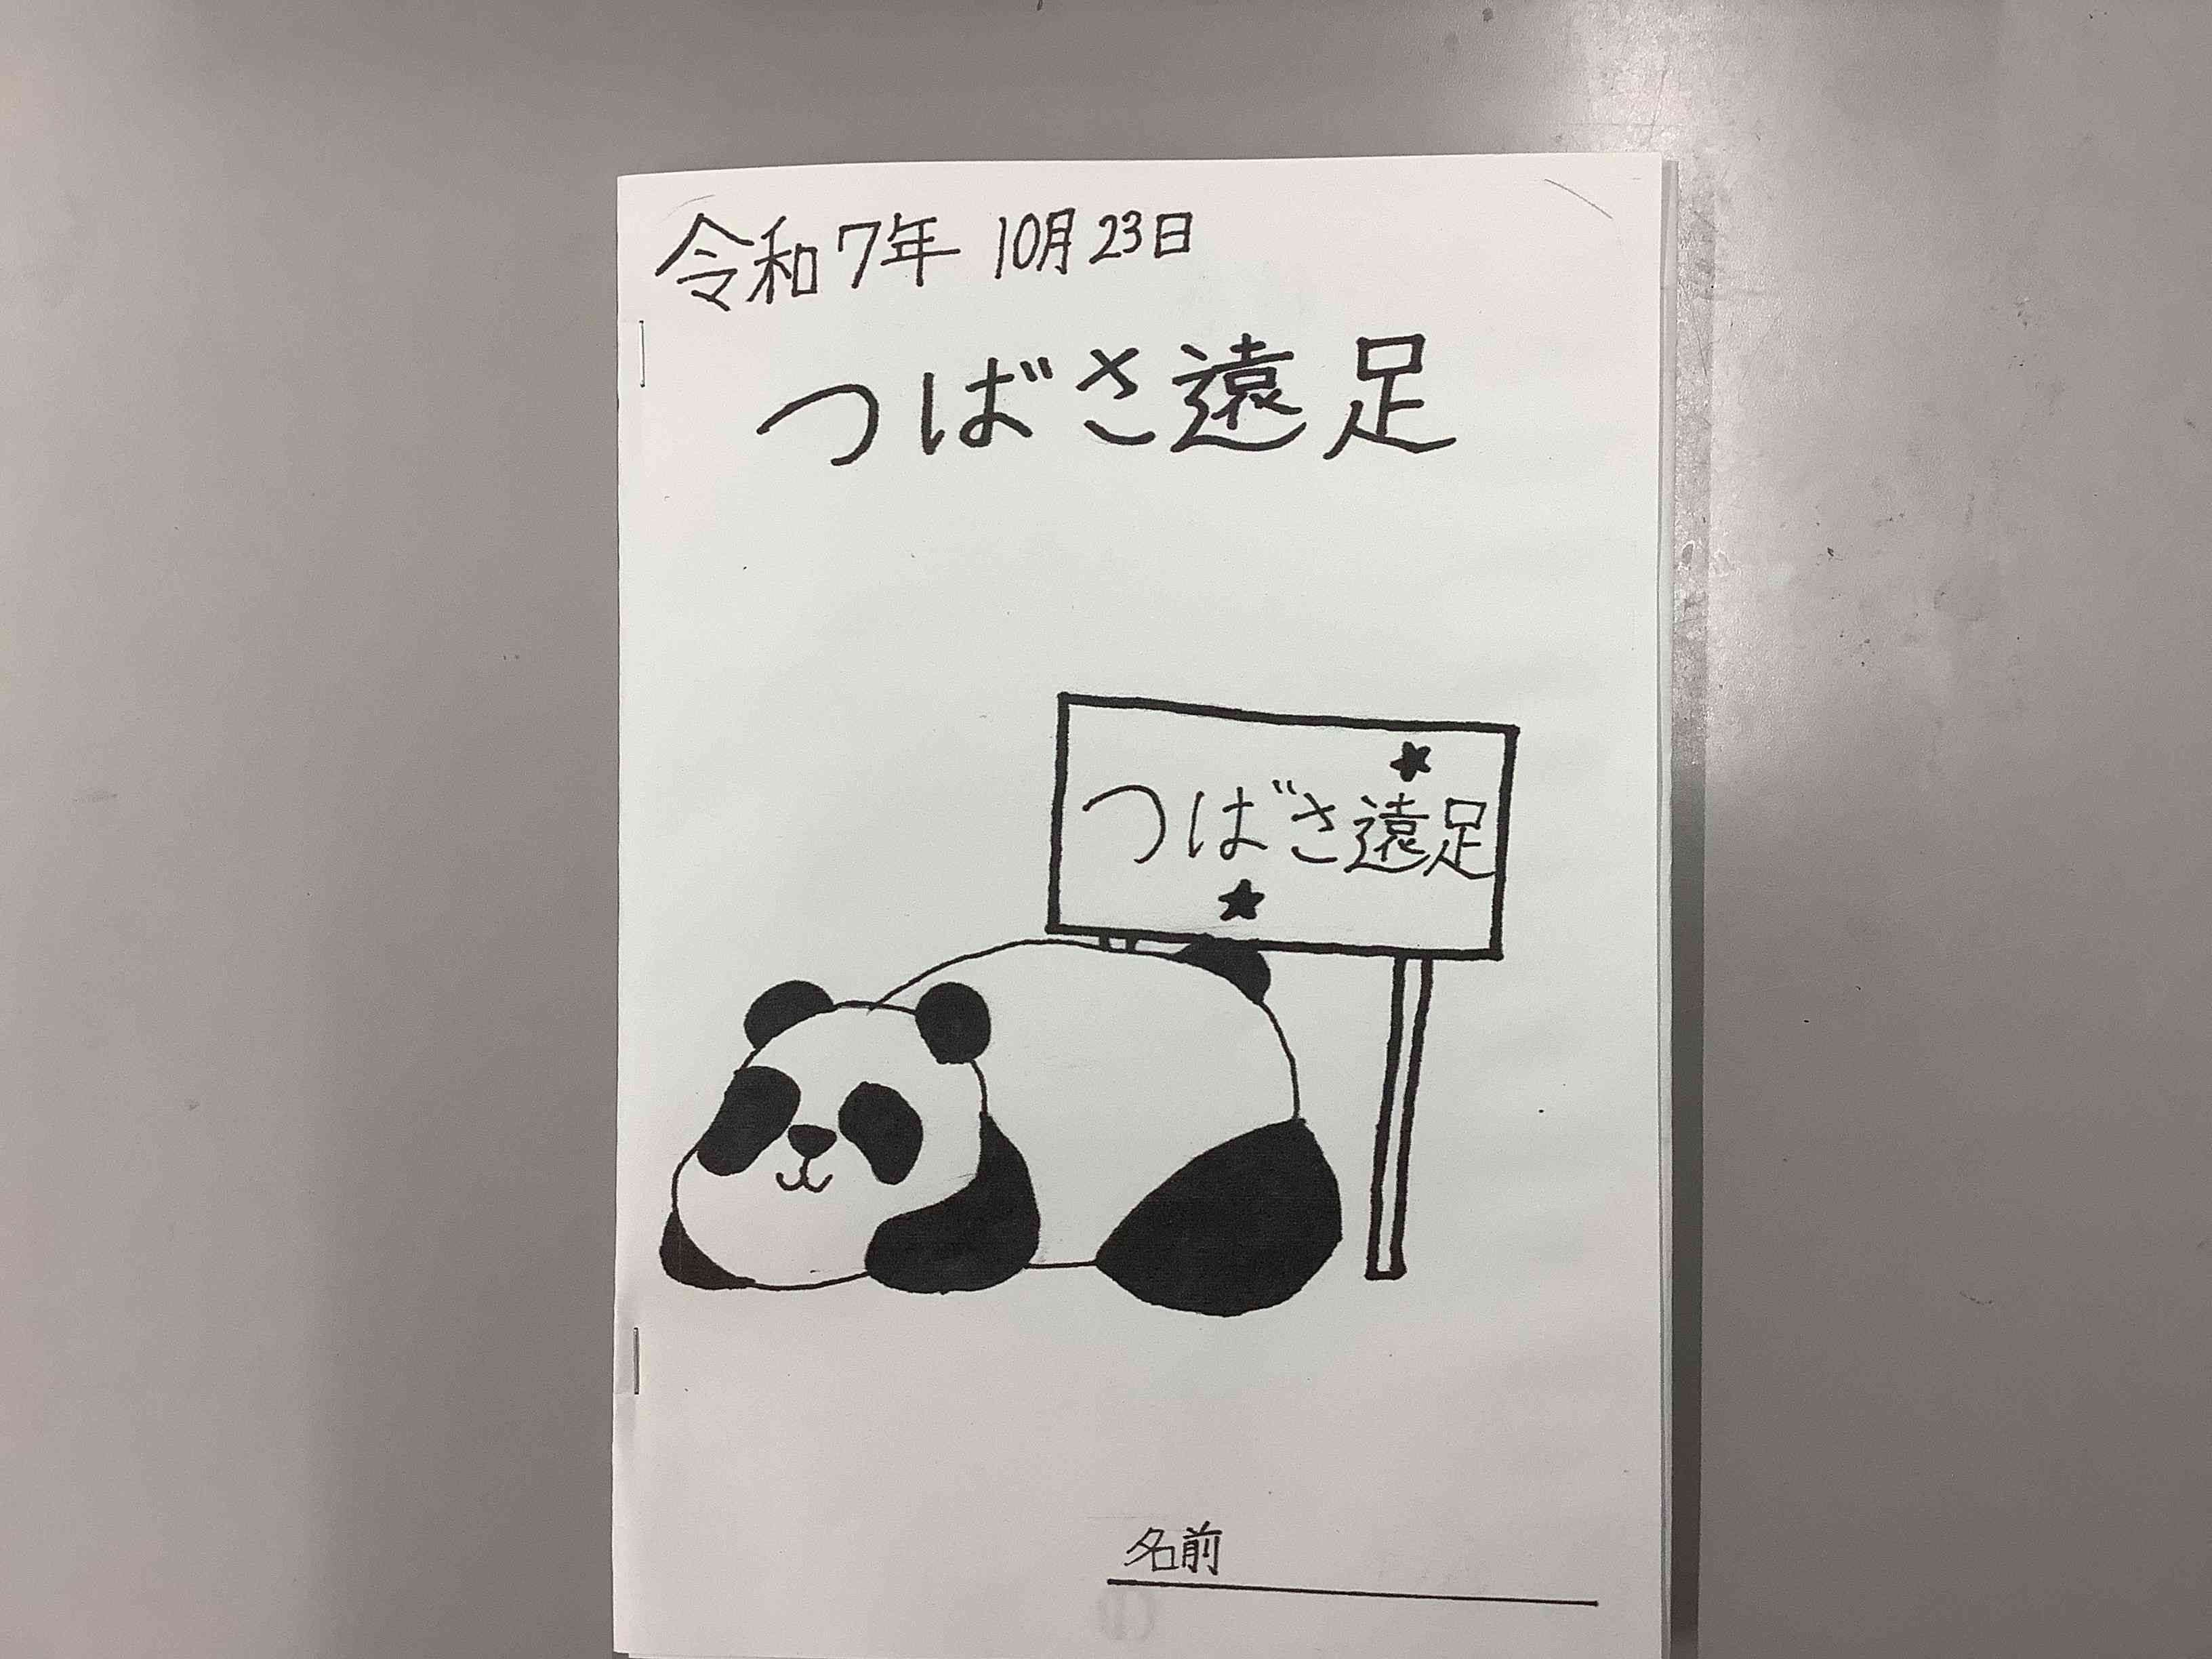 令和7年 10月23日
つばさ遠足
つばさ遠足
名前